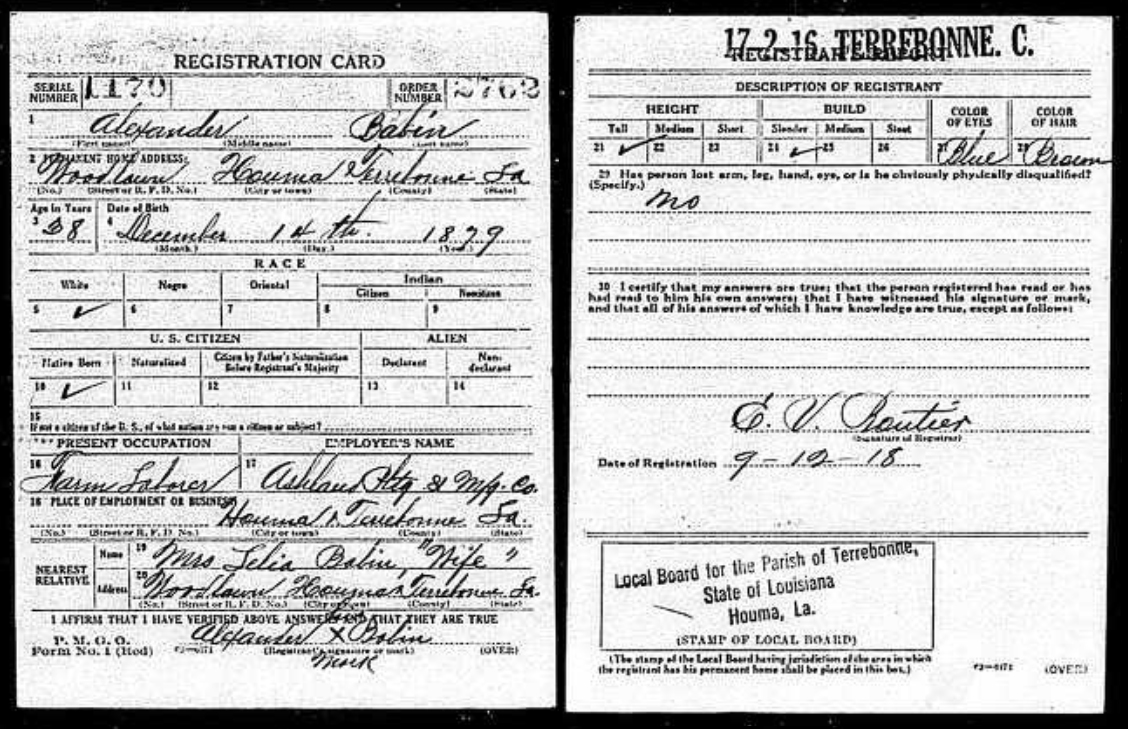 REGISTRATION CARD
SERIAL NUMBER 1170 ORDER NUMBER 2762
1 Alexander Babin
(First name) (Middle name) (Last name)
2 PERMANENT HOME ADDRESS:
Woodlawn Houma Terrebonne La
(No.) (Street or R. F. D. No.) (City or town) (County) (State)
Age in Years Date of Birth
3 38 4 December 14th. 1879
(Month.) (Day.) (Year.)
RACE
White Negro Oriental Indian
Citizen Noncitizen
5 ✓ 6 7 8 9
U. S. CITIZEN ALIEN
Native Born Naturalized Citizen by Father's Naturalization Before Registrant's Majority Declarant Non-declarant
10 ✓ 11 12 13 14
15
If not a citizen of the U. S., of what nation are you a citizen or subject?
PRESENT OCCUPATION EMPLOYER'S NAME
16 Farm Laborer 17 Ashland Pltg & Mfg. Co.
18 PLACE OF EMPLOYMENT OR BUSINESS
Houma Terrebonne La.
(No.) (Street or R. F. D. No.) (City or town) (County) (State)
NEAREST RELATIVE Name 19 Mrs Lelia Babin, "Wife"
Address 20 Woodlawn Houma Terrebonne La.
(No.) (Street or R. F. D. No.) (City or town) (County) (State)
I AFFIRM THAT I HAVE VERIFIED ABOVE ANSWERS AND THAT THEY ARE TRUE
P. M. G. O.
Form No. 1 (Red)
Alexander X Babin
(Registrant's signature or mark) (OVER)
Mark
17-2-16 TERREBONNE. C.
REGISTRAR'S REPORT
DESCRIPTION OF REGISTRANT
HEIGHT BUILD COLOR OF EYES COLOR OF HAIR
Tall Medium Short Slender Medium Stout
21 ✓ 22 23 24 ✓ 25 26 27 Blue 28 Brown
29 Has person lost arm, leg, hand, eye, or is he obviously physically disqualified?
(Specify.)
No
30 I certify that my answers are true; that the person registered has read or has
had read to him his own answers; that I have witnessed his signature or mark,
and that all of his answers of which I have knowledge are true, except as follows:
E. V. Rautier
(Signature of Registrar)
Date of Registration 9-12-18
Local Board for the Parish of Terrebonne,
State of Louisiana
Houma, La.
(STAMP OF LOCAL BOARD)
(The stamp of the Local Board having jurisdiction of the area in which
the registrant has his permanent home shall be placed in this box.)
(OVER)